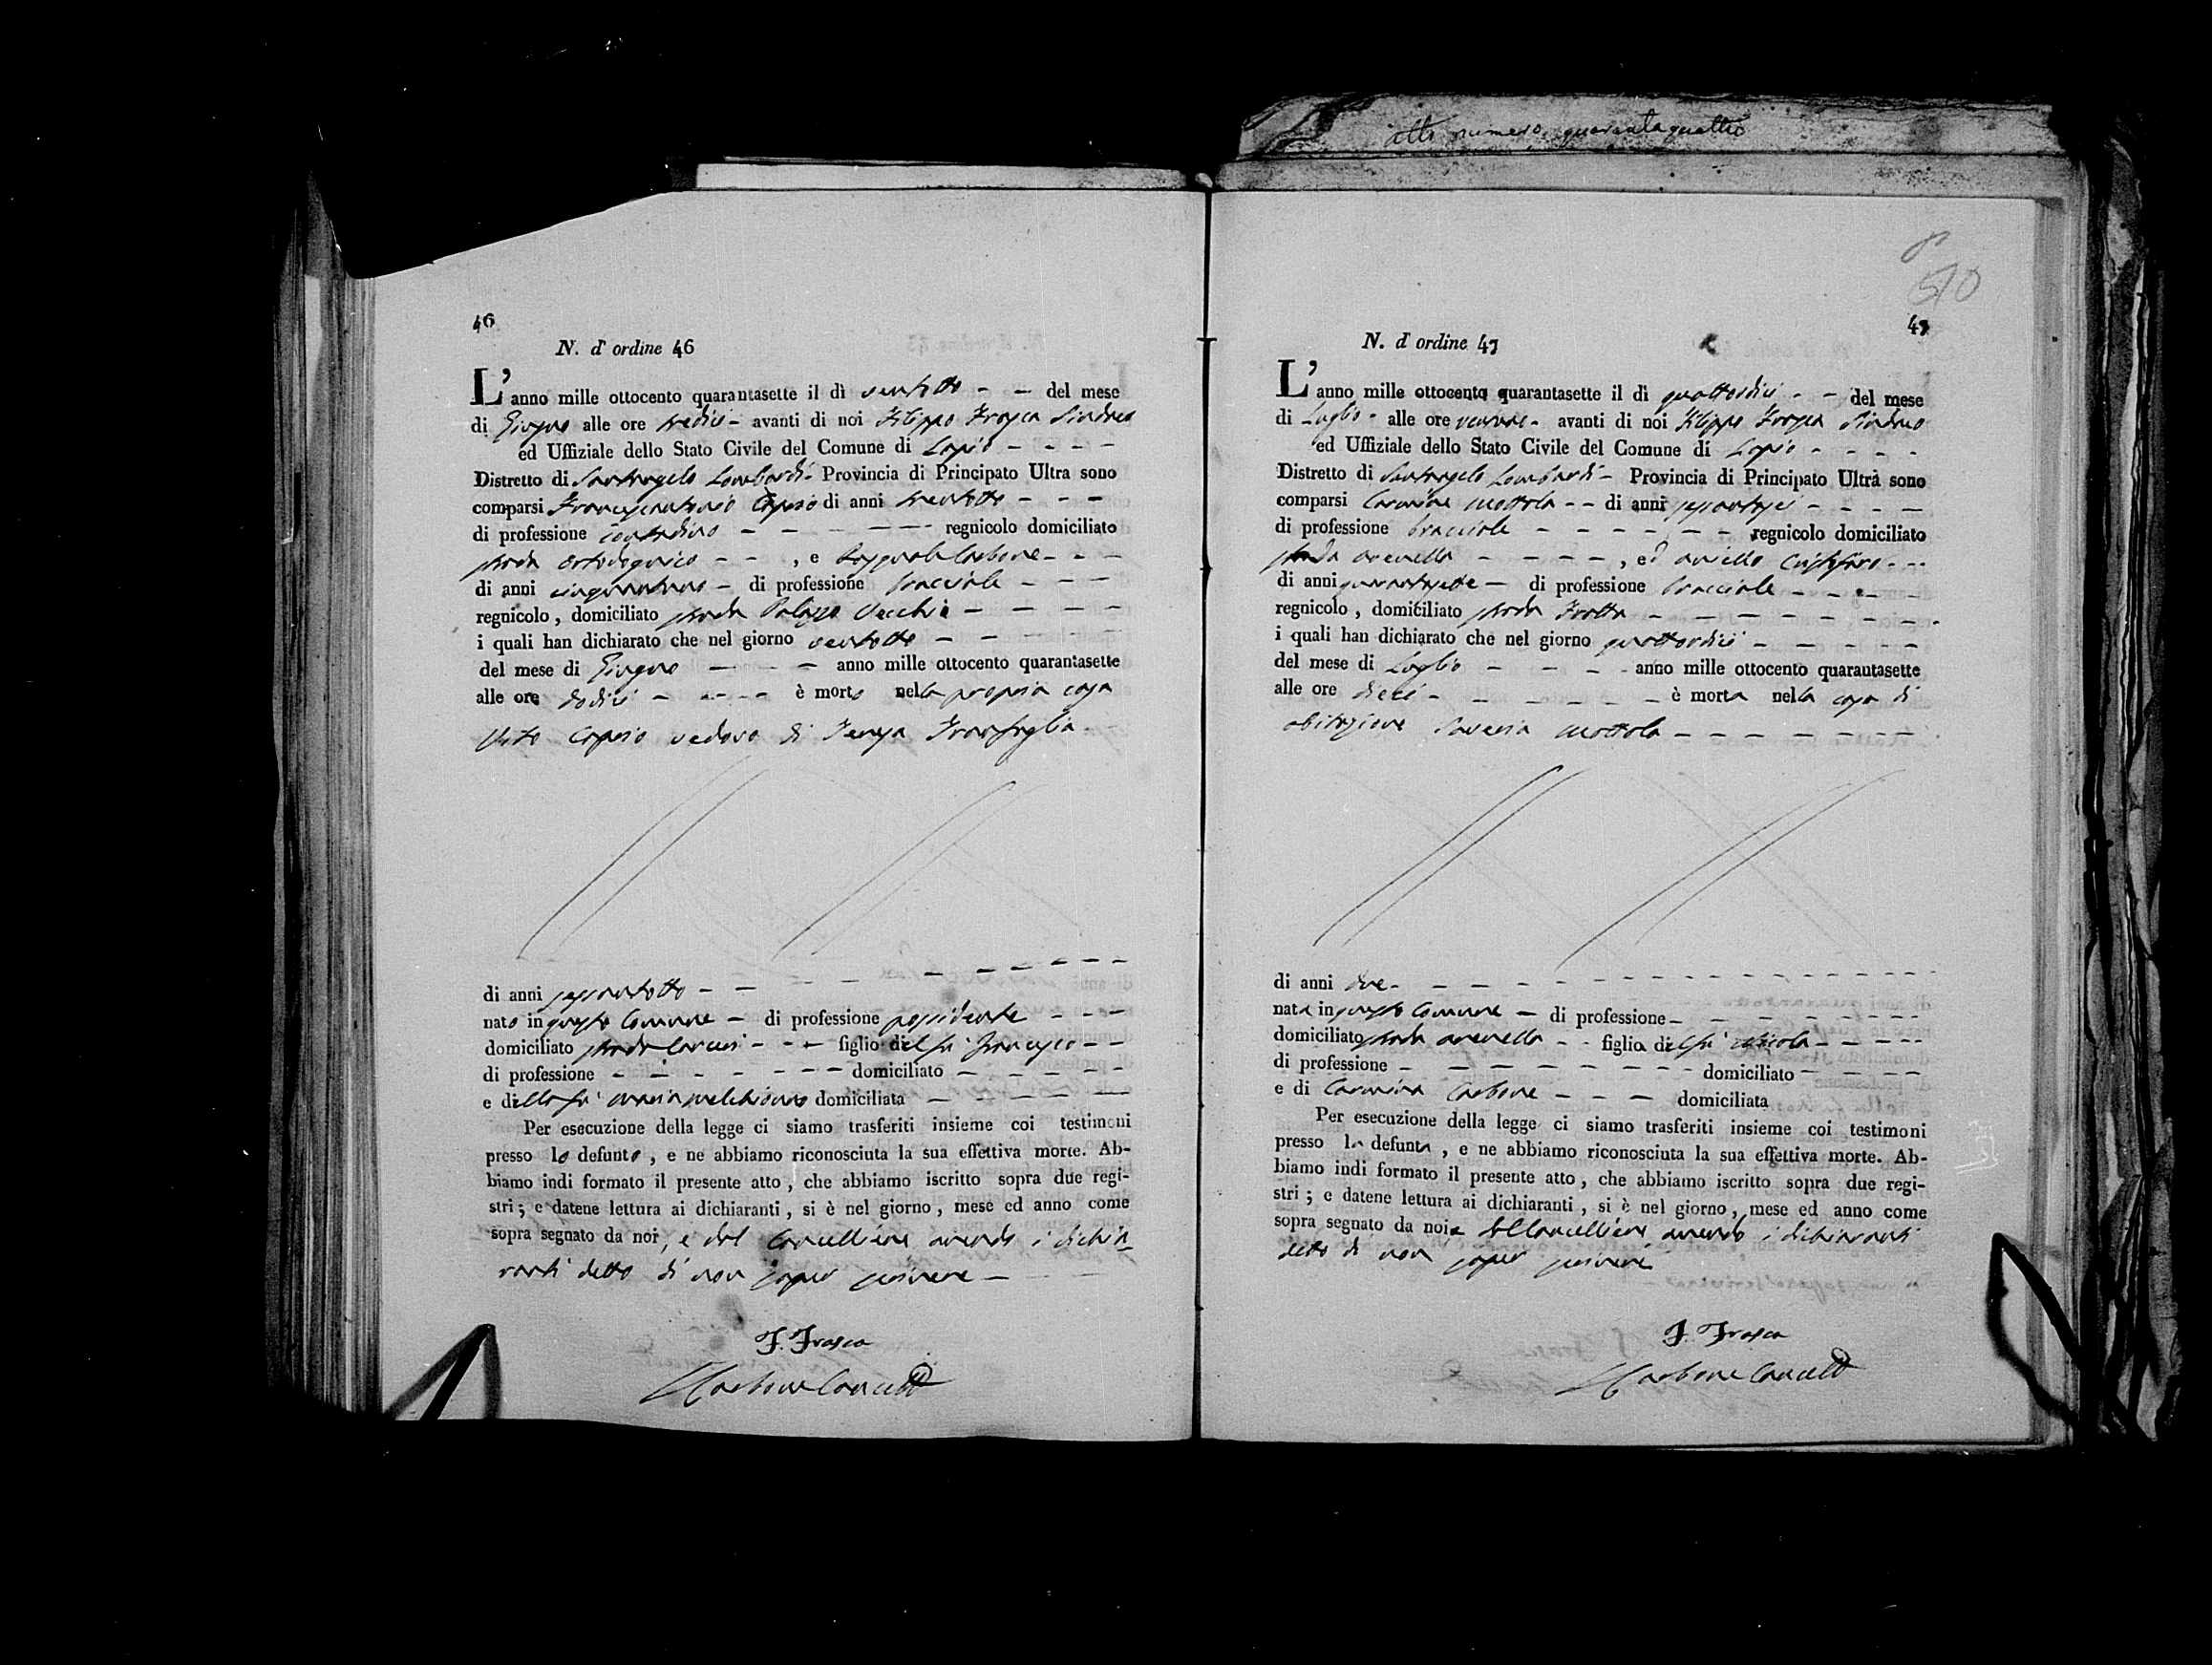 atto numero quarantaquattro
46
N. d' ordine 46
L'anno mille ottocento quarantasette il dì ventotto - - del mese
di Giugno alle ore tredici - avanti di noi Filippo Frasca Sindaco
ed Uffiziale dello Stato Civile del Comune di Lapio - - - -
Distretto di Santangelo Lombardi - Provincia di Principato Ultra sono
comparsi Francescantonio Caprio di anni trentotto - - -
di professione contadino - - - - - regnicolo domiciliato
strada Ortodognico - - , e Pasquale Carbone - - -
di anni cinquantuno - di professione bracciale - - -
regnicolo , domiciliato strada Palazzo Vecchio - - - -
i quali han dichiarato che nel giorno ventotto - - - - -
del mese di Giugno - - - anno mille ottocento quarantasette
alle ore dodici - - - - è morto nella propria casa
Vito Caprio vedovo di Teresa Tranfaglia
di anni sessantotto - - - - - - - - -
nato in questo Comune - di professione possidente - - -
domiciliato strada - - - figlio del fu Francesco - -
di professione - - - - - - - domiciliato - - - - -
e della fu Maria Melchionno domiciliata - - - - -
Per esecuzione della legge ci siamo trasferiti insieme coi testimoni
presso lo defunto , e ne abbiamo riconosciuta la sua effettiva morte. Ab-
biamo indi formato il presente atto , che abbiamo iscritto sopra due regi-
stri ; e datene lettura ai dichiaranti , si è nel giorno , mese ed anno come
sopra segnato da noi, e dal Cancelliere avendo i dichia-
ranti detto di non saper scrivere -
F. Frasca
Carbone Cancell
510
47
N. d' ordine 47
L'anno mille ottocento quarantasette il dì quattordici - - del mese
di Luglio - alle ore - avanti di noi Filippo Frasca Sindaco
ed Uffiziale dello Stato Civile del Comune di Lapio - - - -
Distretto di Santangelo Lombardi - Provincia di Principato Ultra sono
comparsi Carmine Mottola - - di anni sessantasei - - - -
di professione bracciale - - - - - - - regnicolo domiciliato
strada arenella - - - - - , ed Aniello - - -
di anni quarantasette - di professione bracciale - - - -
regnicolo , domiciliato strada Frotta - - - - - - - -
i quali han dichiarato che nel giorno quattordici - - - - -
del mese di Luglio - - - - anno mille ottocento quarantasette
alle ore dieci - - - - - - è morta nella casa di
abitazione Saveria Mottola - - - - - - -
di anni due - - - - - - - - - - -
nata in questo Comune - di professione - - - - - - -
domiciliato strada arenella - - figlia del fu Nicola - - - - -
di professione - - - - - - - - domiciliato - - - -
e di Carmina Carbone - - - domiciliata
Per esecuzione della legge ci siamo trasferiti insieme coi testimoni
presso la defunta , e ne abbiamo riconosciuta la sua effettiva morte. Ab-
biamo indi formato il presente atto , che abbiamo iscritto sopra due regi-
stri ; e datene lettura ai dichiaranti , si è nel giorno , mese ed anno come
sopra segnato da noi e dal Cancelliere avendo i dichiaranti
detto di non saper scrivere
F. Frasca
Carbone Cancell